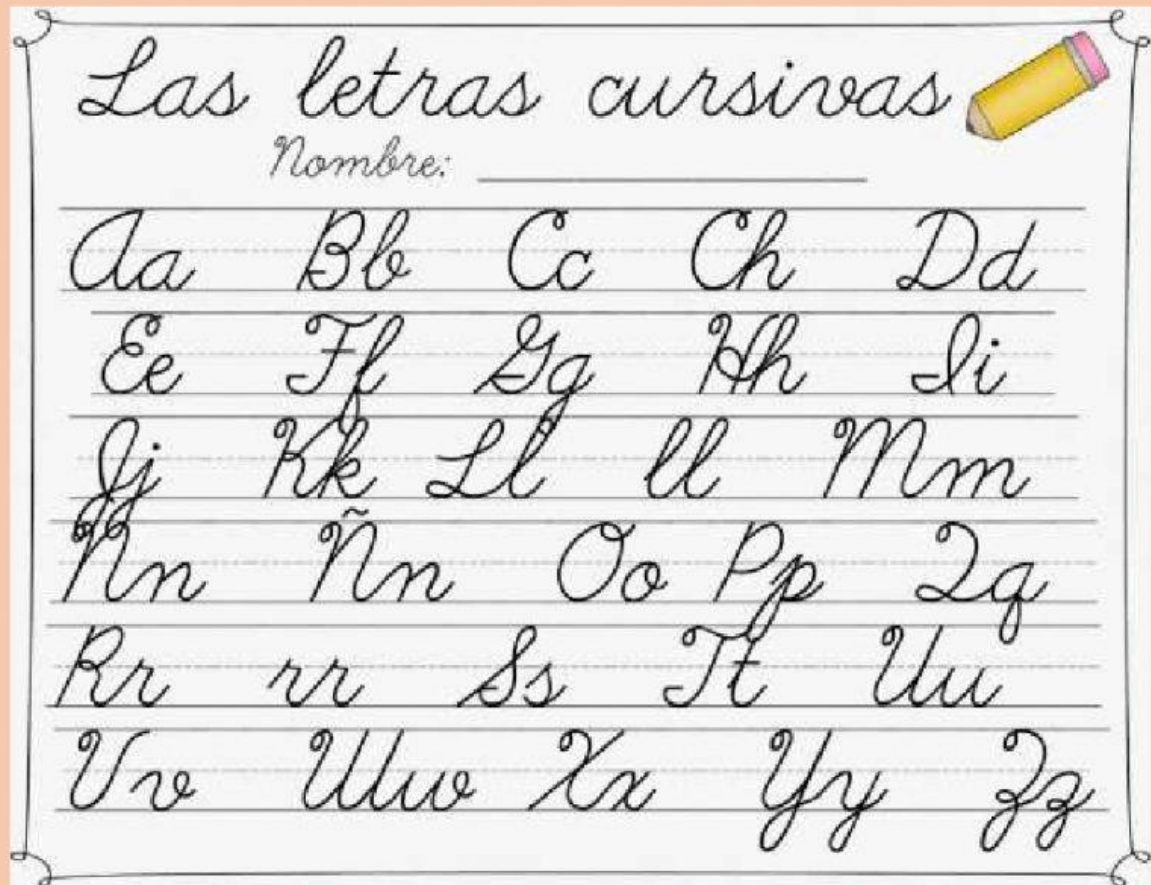 Las letras cursivas
Nombre:
Aa Bb Cc Ch Dd
Ee Ff Gg Hh Ii
Jj Kk Ll ll Mm
Nn Ñn Oo Pp Qq
Rr rr Ss Tt Uu
Vv Ww Xx Yy Zz